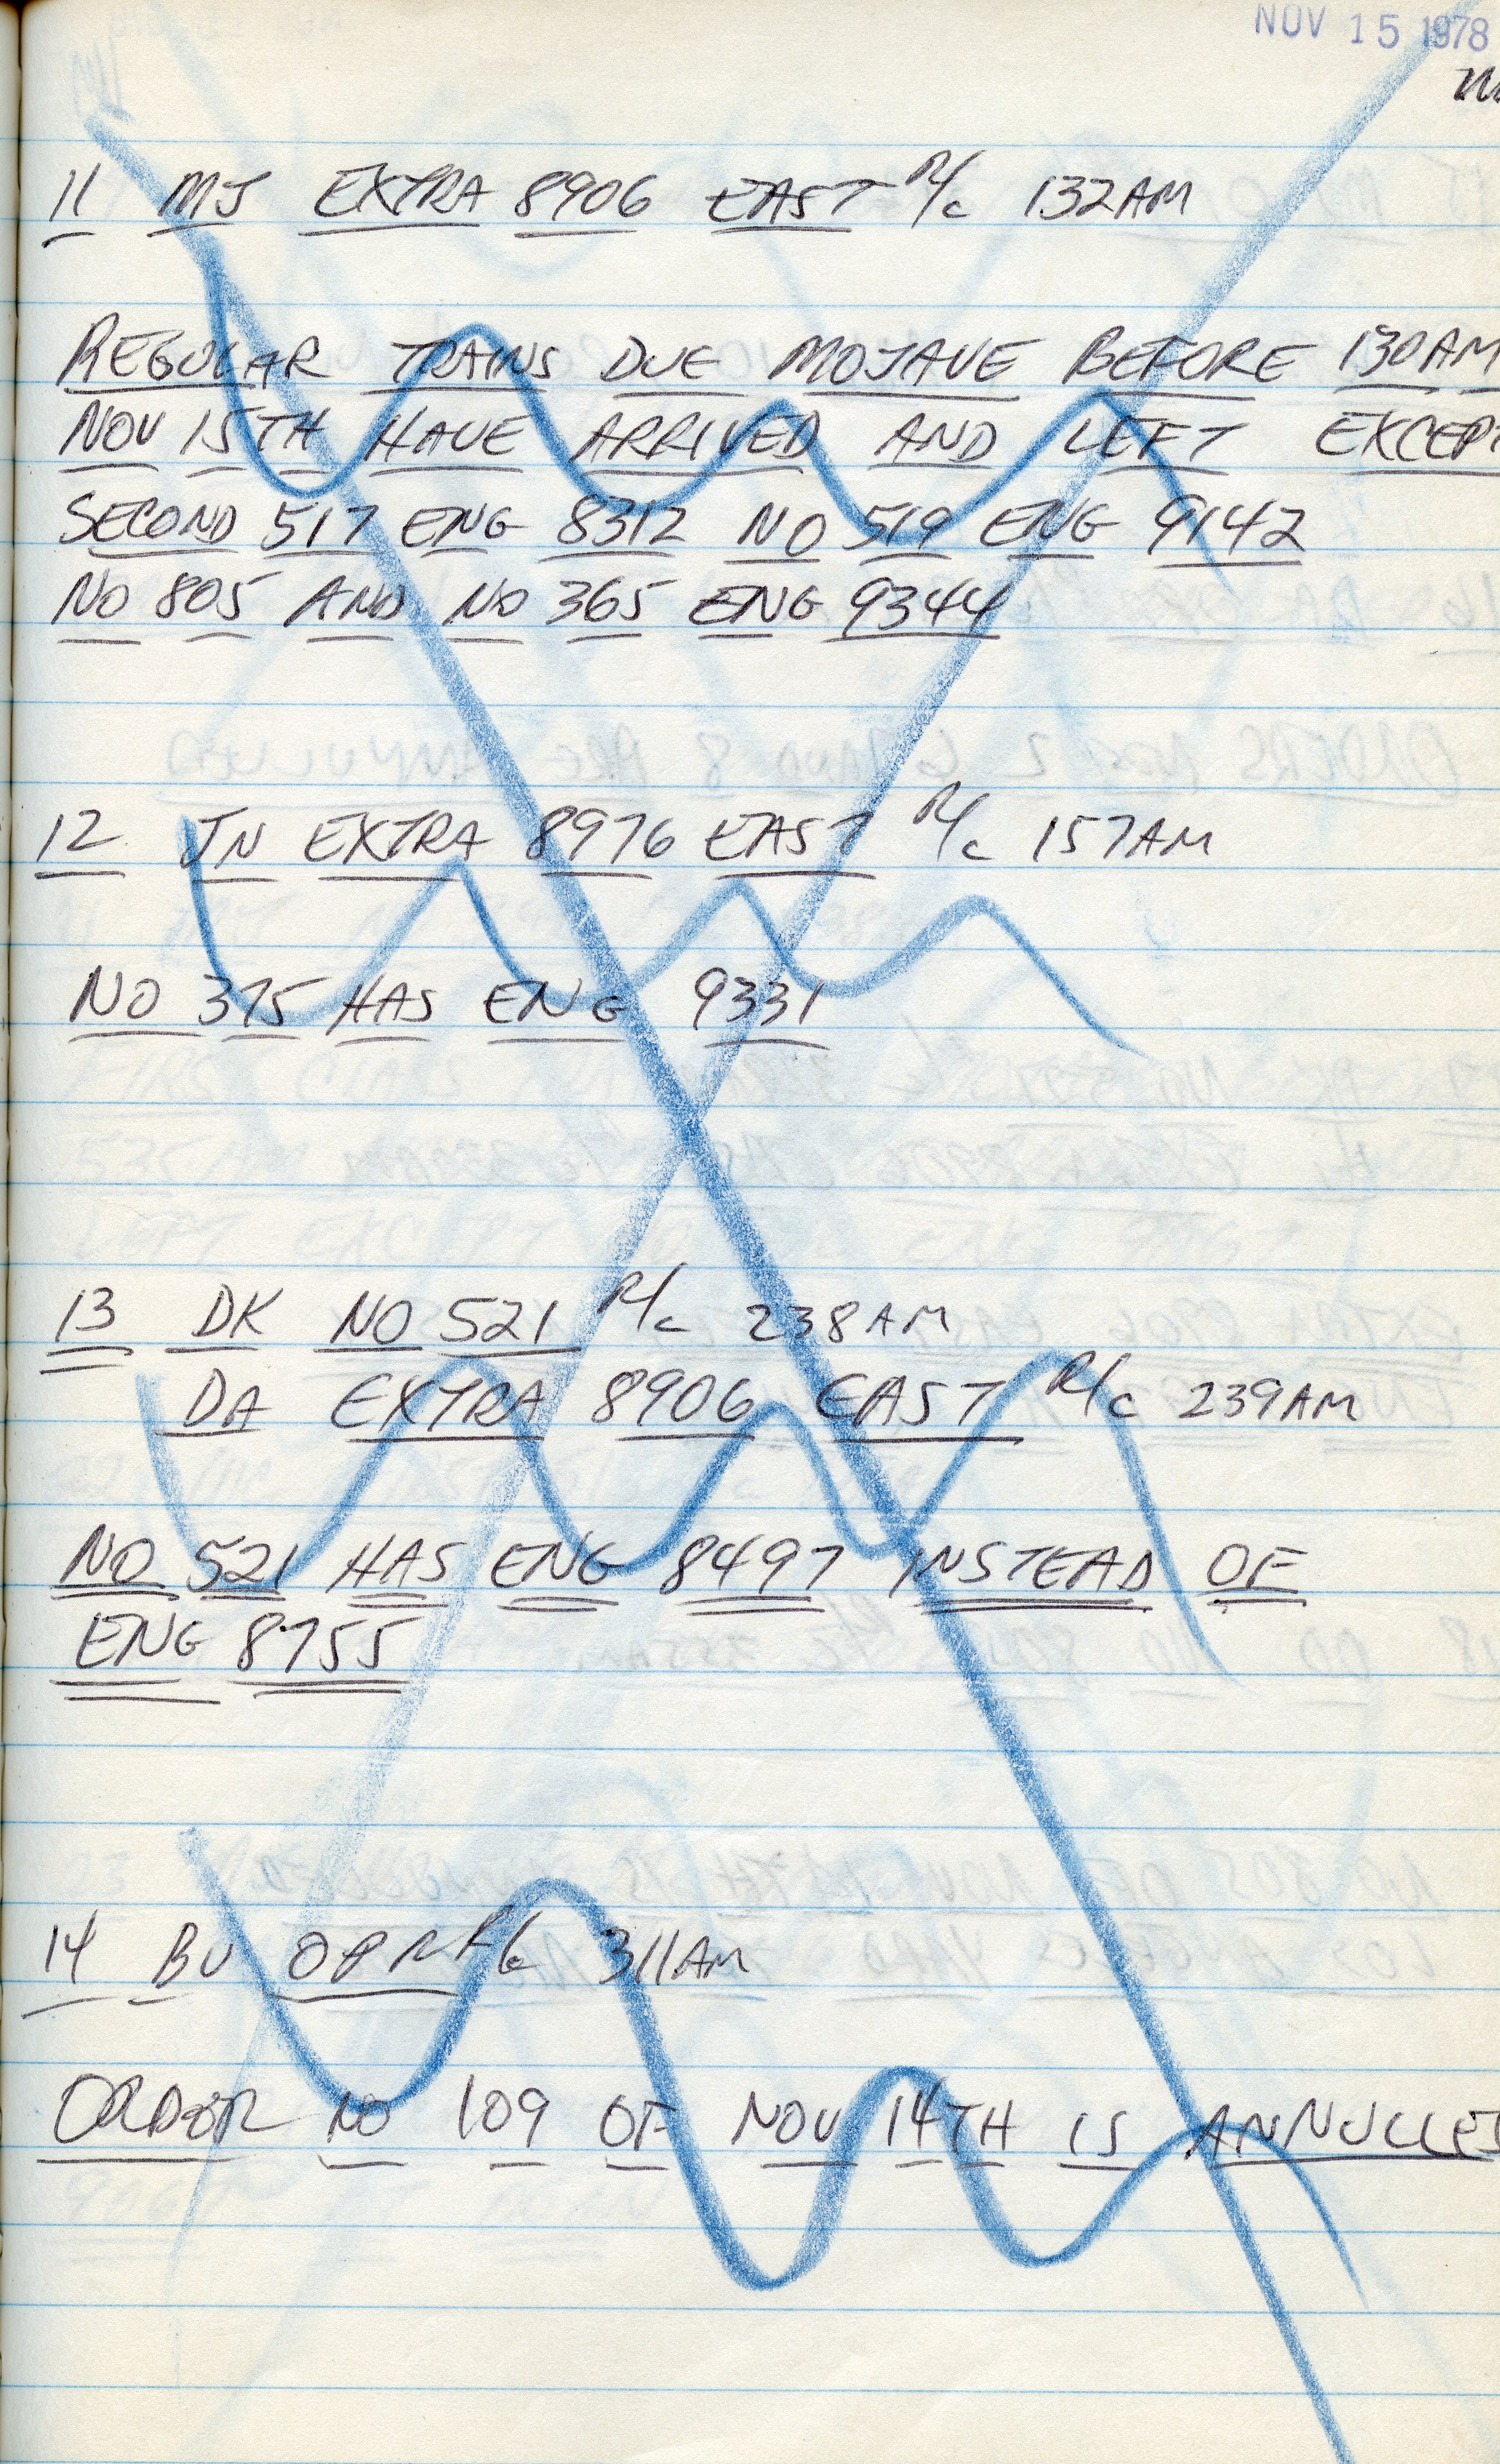 NOV 15 1978
11 MJ EXTRA 8906 EAST R/c 132AM
REGULAR TRAINS DUE MOJAVE BEFORE 130AM
NOV 15TH HAVE ARRIVED AND LEFT EXCEPT
SECOND 517 ENG 8312 NO 519 ENG 9142
NO 805 AND NO 365 ENG 9344
12 JN EXTRA 8976 EAST R/c 157AM
NO 375 HAS ENG 9331
13 DK NO 521 R/c 238AM
DA EXTRA 8906 EAST R/c 239AM
NO 521 HAS ENG 8497 INSTEAD OF
ENG 8755
14 BU OPR R/c 311AM
ORDER NO 109 OF NOV 14TH IS ANNULLED